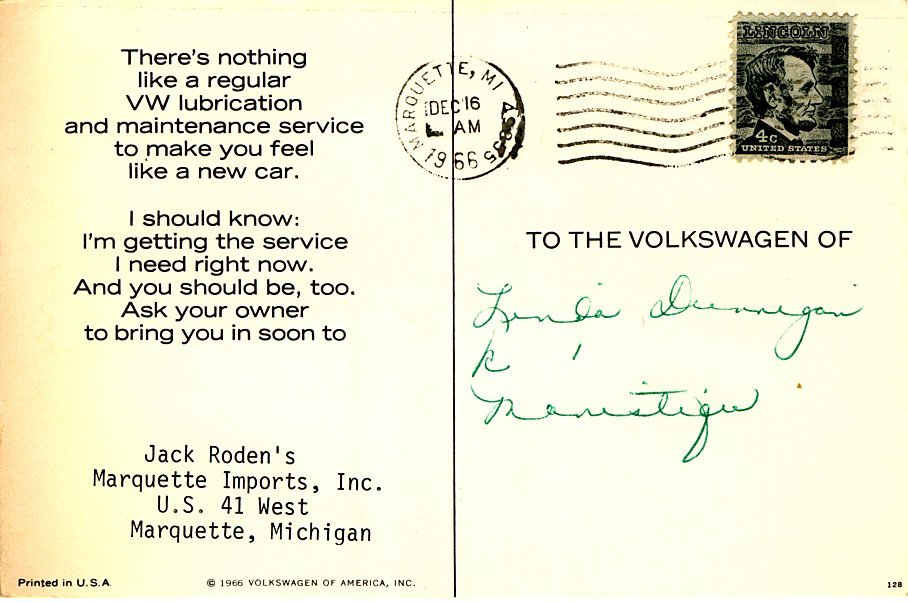 There's nothing
like a regular
VW lubrication
and maintenance service
to make you feel
like a new car.
I should know:
I'm getting the service
I need right now.
And you should be, too.
Ask your owner
to bring you in soon to
Jack Roden's
Marquette Imports, Inc.
U.S. 41 West
Marquette, Michigan
Printed in U.S.A
© 1966 VOLKSWAGEN OF AMERICA, INC.
MARQUETTE, MI
DEC 16
AM
1966
LINCOLN
4c
UNITED STATES
TO THE VOLKSWAGEN OF
Linda Dunnegan
R 1
Manistique
128